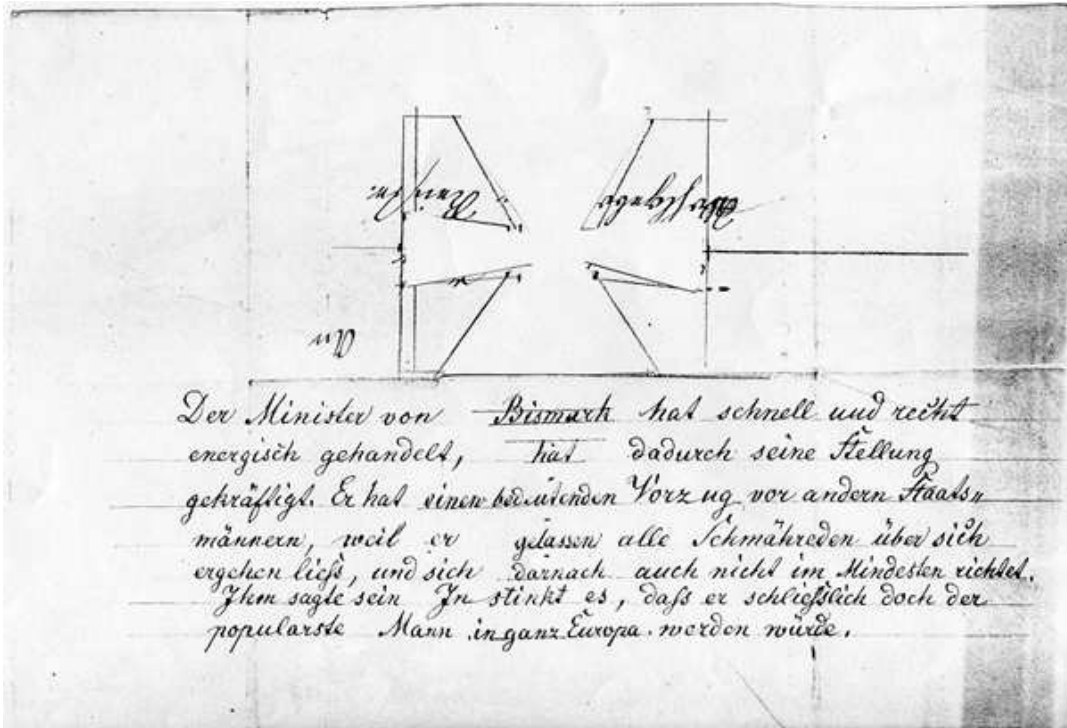 An
Der Minister von Bismark hat schnell und recht
energisch gehandelt, hat dadurch seine Stellung
gekräftigt. Er hat einen bedeutenden Vorzug vor andern Staats„
männern, weil er gelassen alle Schmähreden über sich
ergehen ließ, und sich darnach auch nicht im Mindesten richtet.
Ihm sagte sein In stinkt es, daß er schließlich doch der
popularste Mann in ganz Europa werden würde.